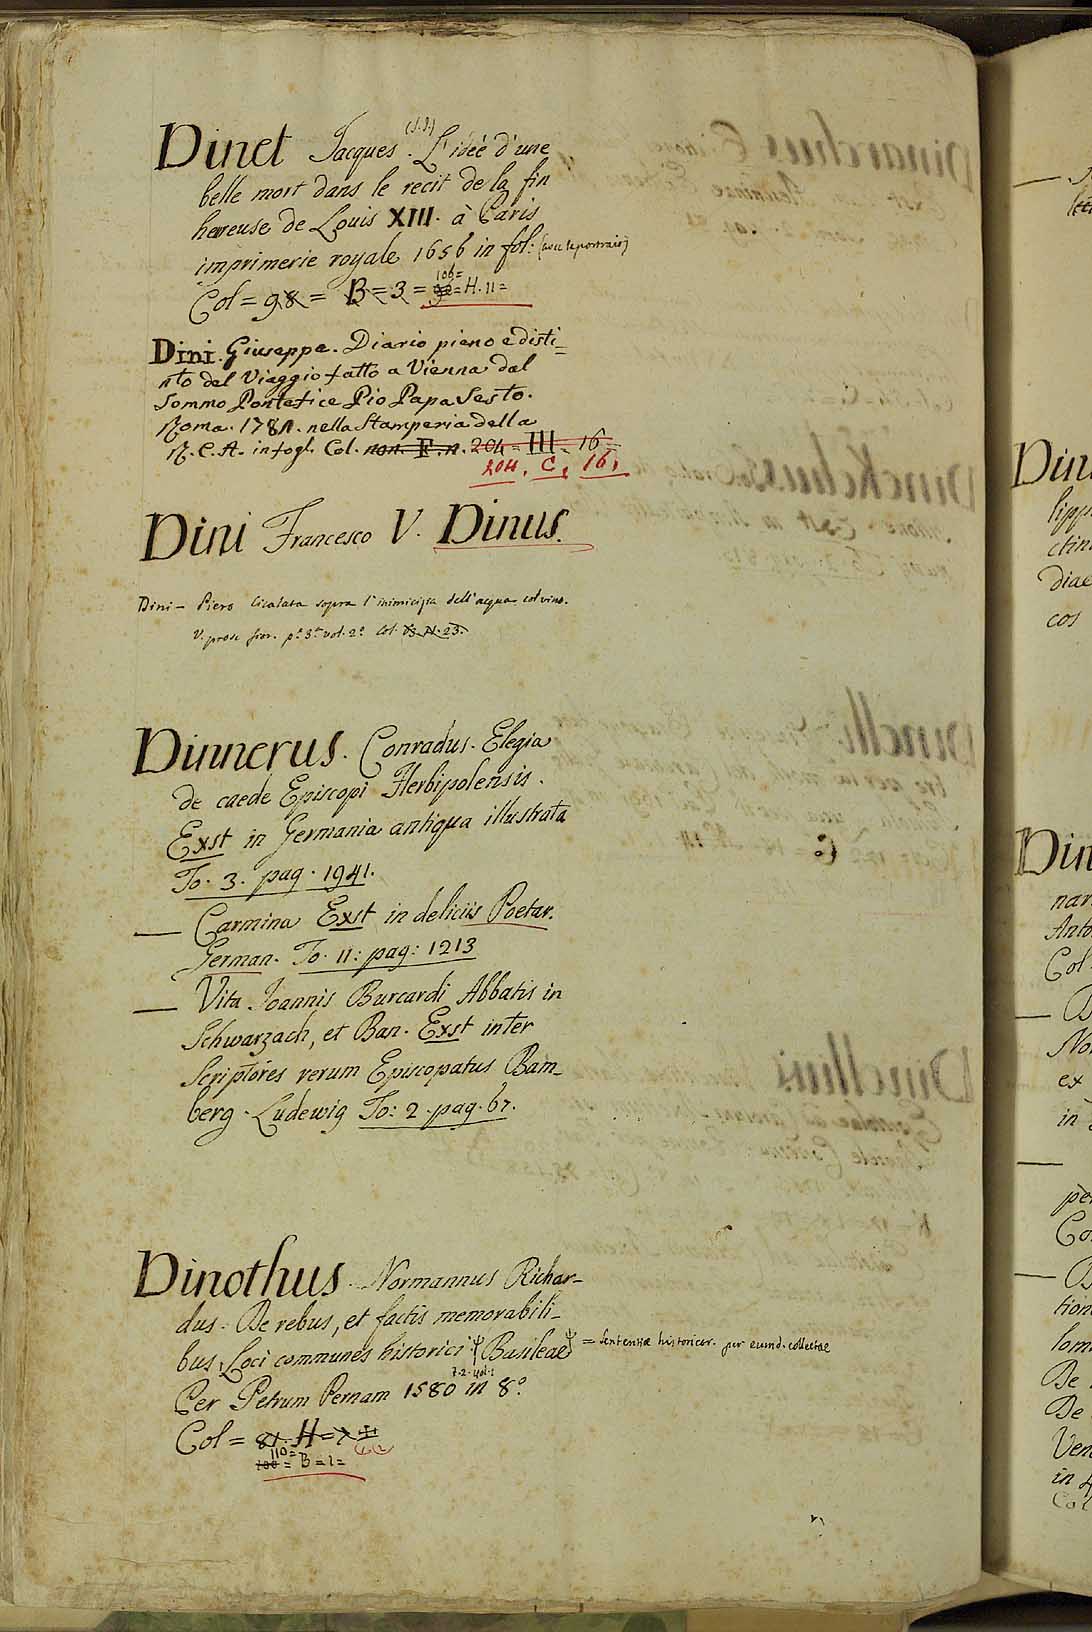 Dinet Jacques. (S.J.) L'ideé d'une
belle mort dans le recit de la fin
hereuse de Louis XIII. à Paris
imprimerie royale 1656 in fol: (avec le portrait)
Col = 98 = B = 3 = 106 = H. 11 =
Dini. Giuseppe. Diario pieno e disti=
nto del Viaggio fatto a Vienna dal
Sommo Pontefice Pio Papa Sesto.
Roma. 1781. nella Stamperia della
R. C. A. in fogl. Col. non. F. n. 204 = III = 16
204. C, 16.
Dini Francesco V. Dinus.
Dini - Piero Cicalata sopra l'inimicizia dell'acqua col vino.
V. prose fior. p.e 3.a vol. 2.o Col. 93. N. 23.
Dinnerus. Conradus. Elegia
de caede Episcopi Herbipolensis.
Exst in Germania antiqua illustrata
To. 3. pag. 1941.
— Carmina Exst in deliciis Poetar.
German. To. 11: pag: 1213
— Vita Joannis Burcardi Abbatis in
Schwarzach, et Ban. Exst inter
Scriptores rerum Episcopatus Bam_
berg. Ludewig To: 2. pag. 67.
Dinothus. Normannus Richar_
dus. De rebus, et factis memorabili_
bus Loci communes historici Basileae = Sententiae historicor. per eumd. collectae
Per Petrum Pernam 1580 in 8.o
Col = 81. H = 7
110 =
100 = B = 1 =